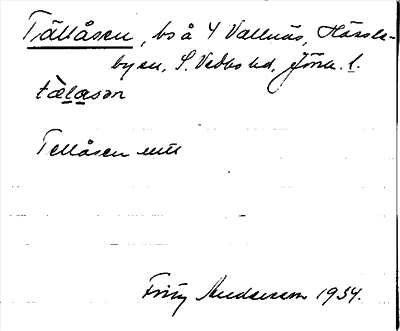 Tällåsen, bs å Y Vallnäs, Hässle-
byn, S. Vedbo hd, Jönk. l.
tälasən
Tellåsen
Fritz Andersson 1934.